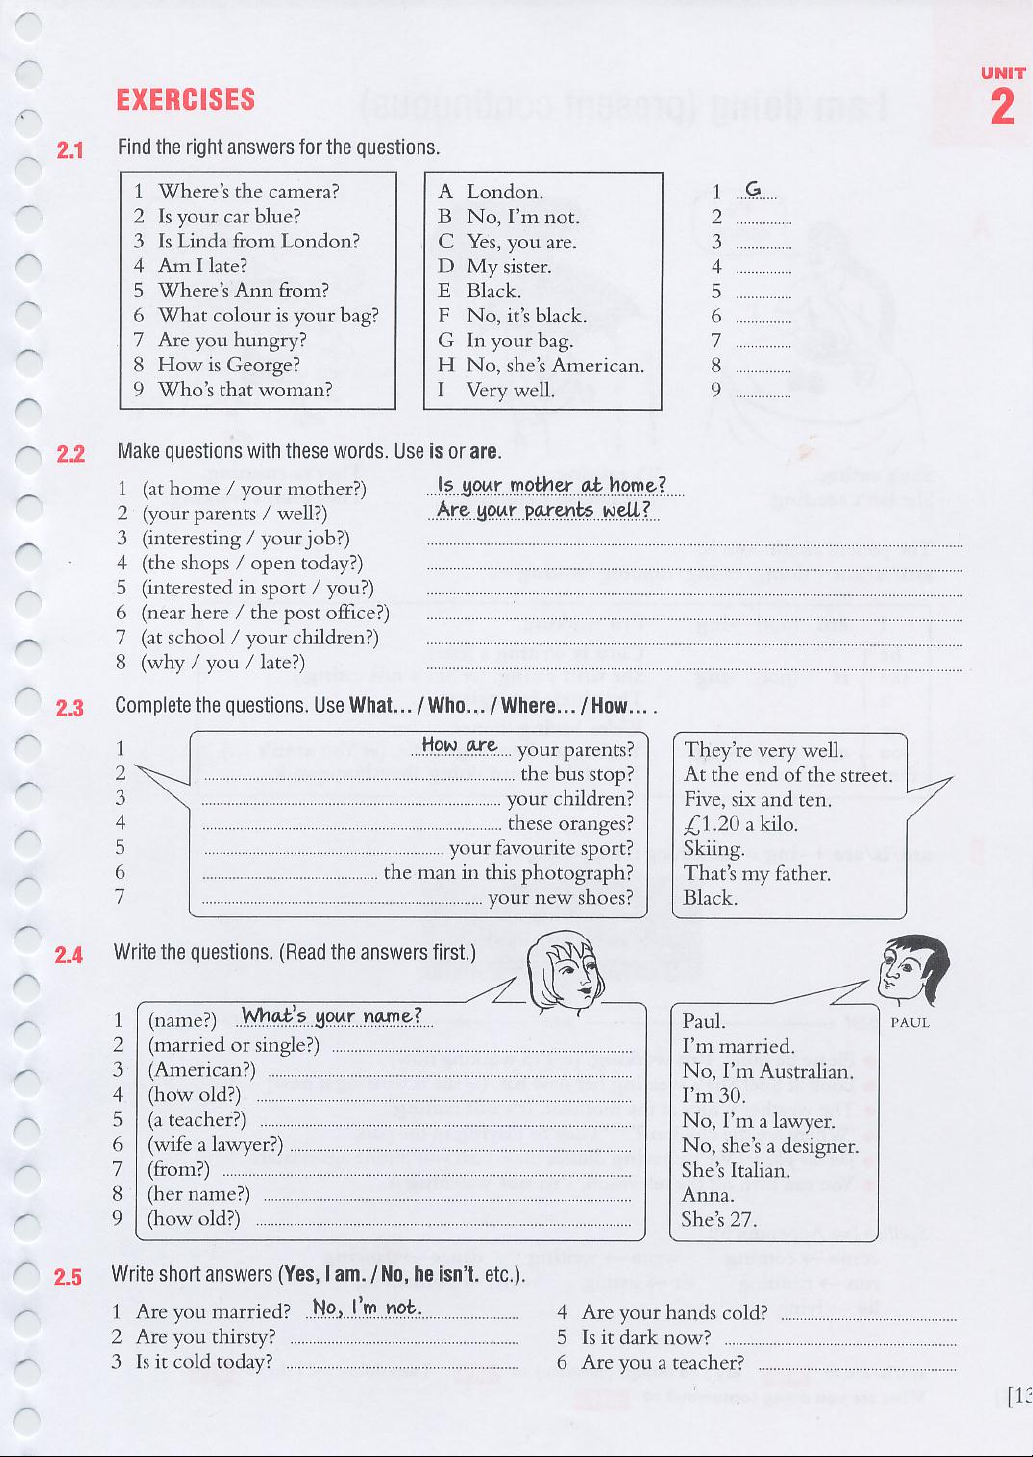 UNIT
2
EXERCISES
2.1 Find the right answers for the questions.
1 Where's the camera? A London. 1 G
2 Is your car blue? B No, I'm not. 2 ...............
3 Is Linda from London? C Yes, you are. 3 ...............
4 Am I late? D My sister. 4 ...............
5 Where's Ann from? E Black. 5 ...............
6 What colour is your bag? F No, it's black. 6 ...............
7 Are you hungry? G In your bag. 7 ...............
8 How is George? H No, she's American. 8 ...............
9 Who's that woman? I Very well. 9 ...............
2.2 Make questions with these words. Use is or are.
1 (at home / your mother?) Is your mother at home?
2 (your parents / well?) Are your parents well?
3 (interesting / your job?) ...............
4 (the shops / open today?) ...............
5 (interested in sport / you?) ...............
6 (near here / the post office?) ...............
7 (at school / your children?) ...............
8 (why / you / late?) ...............
2.3 Complete the questions. Use What... / Who... / Where... / How... .
1 How are your parents? They're very well.
2 ............... the bus stop? At the end of the street.
3 ............... your children? Five, six and ten.
4 ............... these oranges? £1.20 a kilo.
5 ............... your favourite sport? Skiing.
6 ............... the man in this photograph? That's my father.
7 ............... your new shoes? Black.
2.4 Write the questions. (Read the answers first.)
1 (name?) What's your name? Paul. PAUL
2 (married or single?) ............... I'm married.
3 (American?) ............... No, I'm Australian.
4 (how old?) ............... I'm 30.
5 (a teacher?) ............... No, I'm a lawyer.
6 (wife a lawyer?) ............... No, she's a designer.
7 (from?) ............... She's Italian.
8 (her name?) ............... Anna.
9 (how old?) ............... She's 27.
2.5 Write short answers (Yes, I am. / No, he isn't. etc.).
1 Are you married? No, I'm not. 4 Are your hands cold? ...............
2 Are you thirsty? ............... 5 Is it dark now? ...............
3 Is it cold today? ............... 6 Are you a teacher? ...............
[13